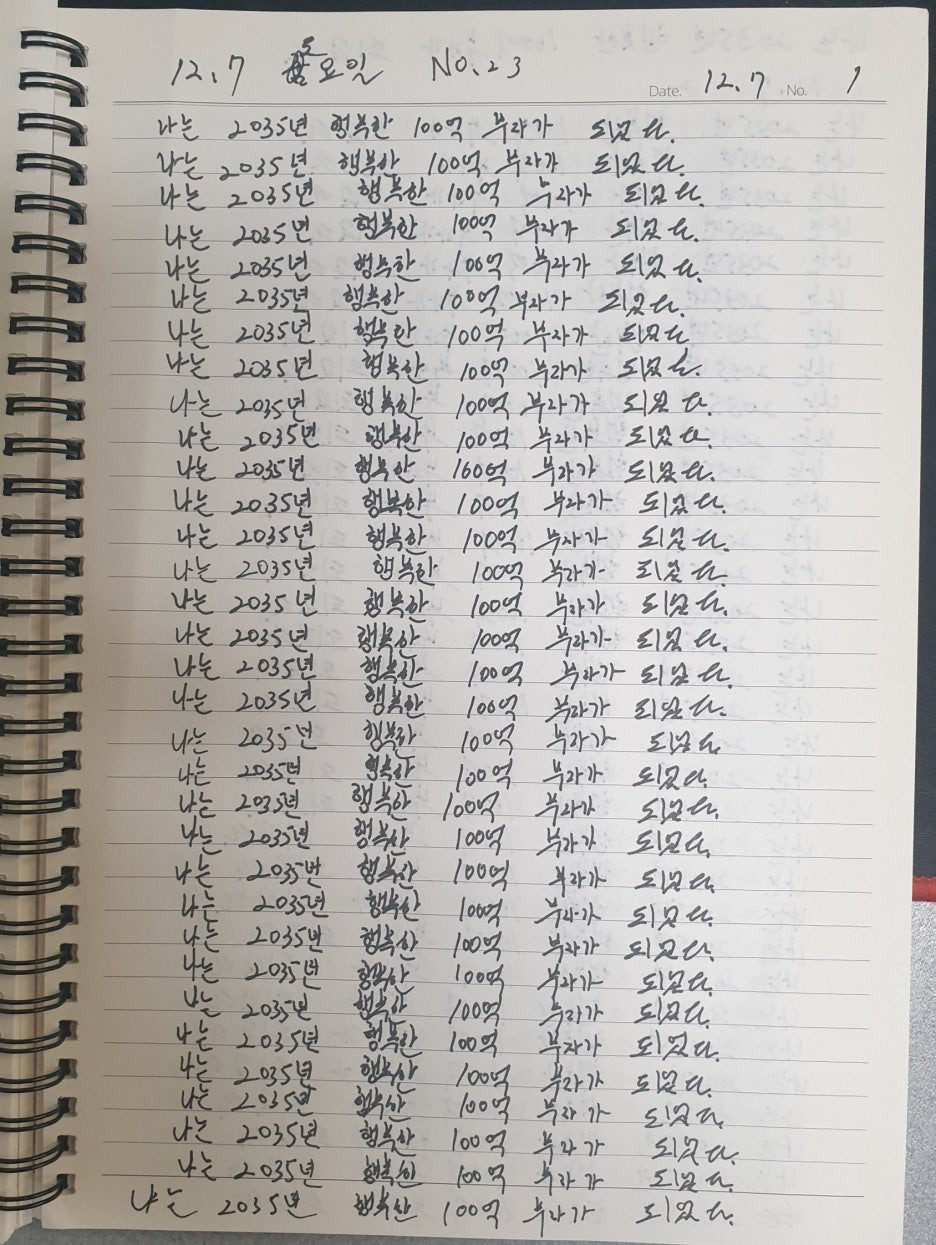 12.7 요일 NO.23
Date. 12.7 No. 1
나는 2035년 행복한 100억 부자가 되었다.
나는 2035년 행복한 100억 부자가 되었다.
나는 2035년 행복한 100억 부자가 되었다.
나는 2035년 행복한 100억 부자가 되었다.
나는 2035년 행복한 100억 부자가 되었다.
나는 2035년 행복한 100억 부자가 되었다.
나는 2035년 행복한 100억 부자가 되었다
나는 2035년 행복한 100억 부자가 되었다.
나는 2035년 행복한 100억 부자가 되었다.
나는 2035년 행복한 100억 부자가 되었다.
나는 2035년 행복한 100억 부자가 되었다.
나는 2035년 행복한 100억 부자가 되었다.
나는 2035년 행복한 100억 부자가 되었다.
나는 2035년 행복한 100억 부자가 되었다.
나는 2035년 행복한 100억 부자가 되었다.
나는 2035년 행복한 100억 부자가 되었다.
나는 2035년 행복한 100억 부자가 되었다.
나는 2035년 행복한 100억 부자가 되었다.
나는 2035년 행복한 100억 부자가 되었다.
나는 2035년 행복한 100억 부자가 되었다.
나는 2035년 행복한 100억 부자가 되었다.
나는 2035년 행복한 100억 부자가 되었다.
나는 2035년 행복한 100억 부자가 되었다.
나는 2035년 행복한 100억 부자가 되었다.
나는 2035년 행복한 100억 부자가 되었다.
나는 2035년 행복한 100억 부자가 되었다.
나는 2035년 행복한 100억 부자가 되었다.
나는 2035년 행복한 100억 부자가 되었다.
나는 2035년 행복한 100억 부자가 되었다.
나는 2035년 행복한 100억 부자가 되었다.
나는 2035년 행복한 100억 부자가 되었다.
나는 2035년 행복한 100억 부자가 되었다.
나는 2035년 행복한 100억 부자가 되었다.